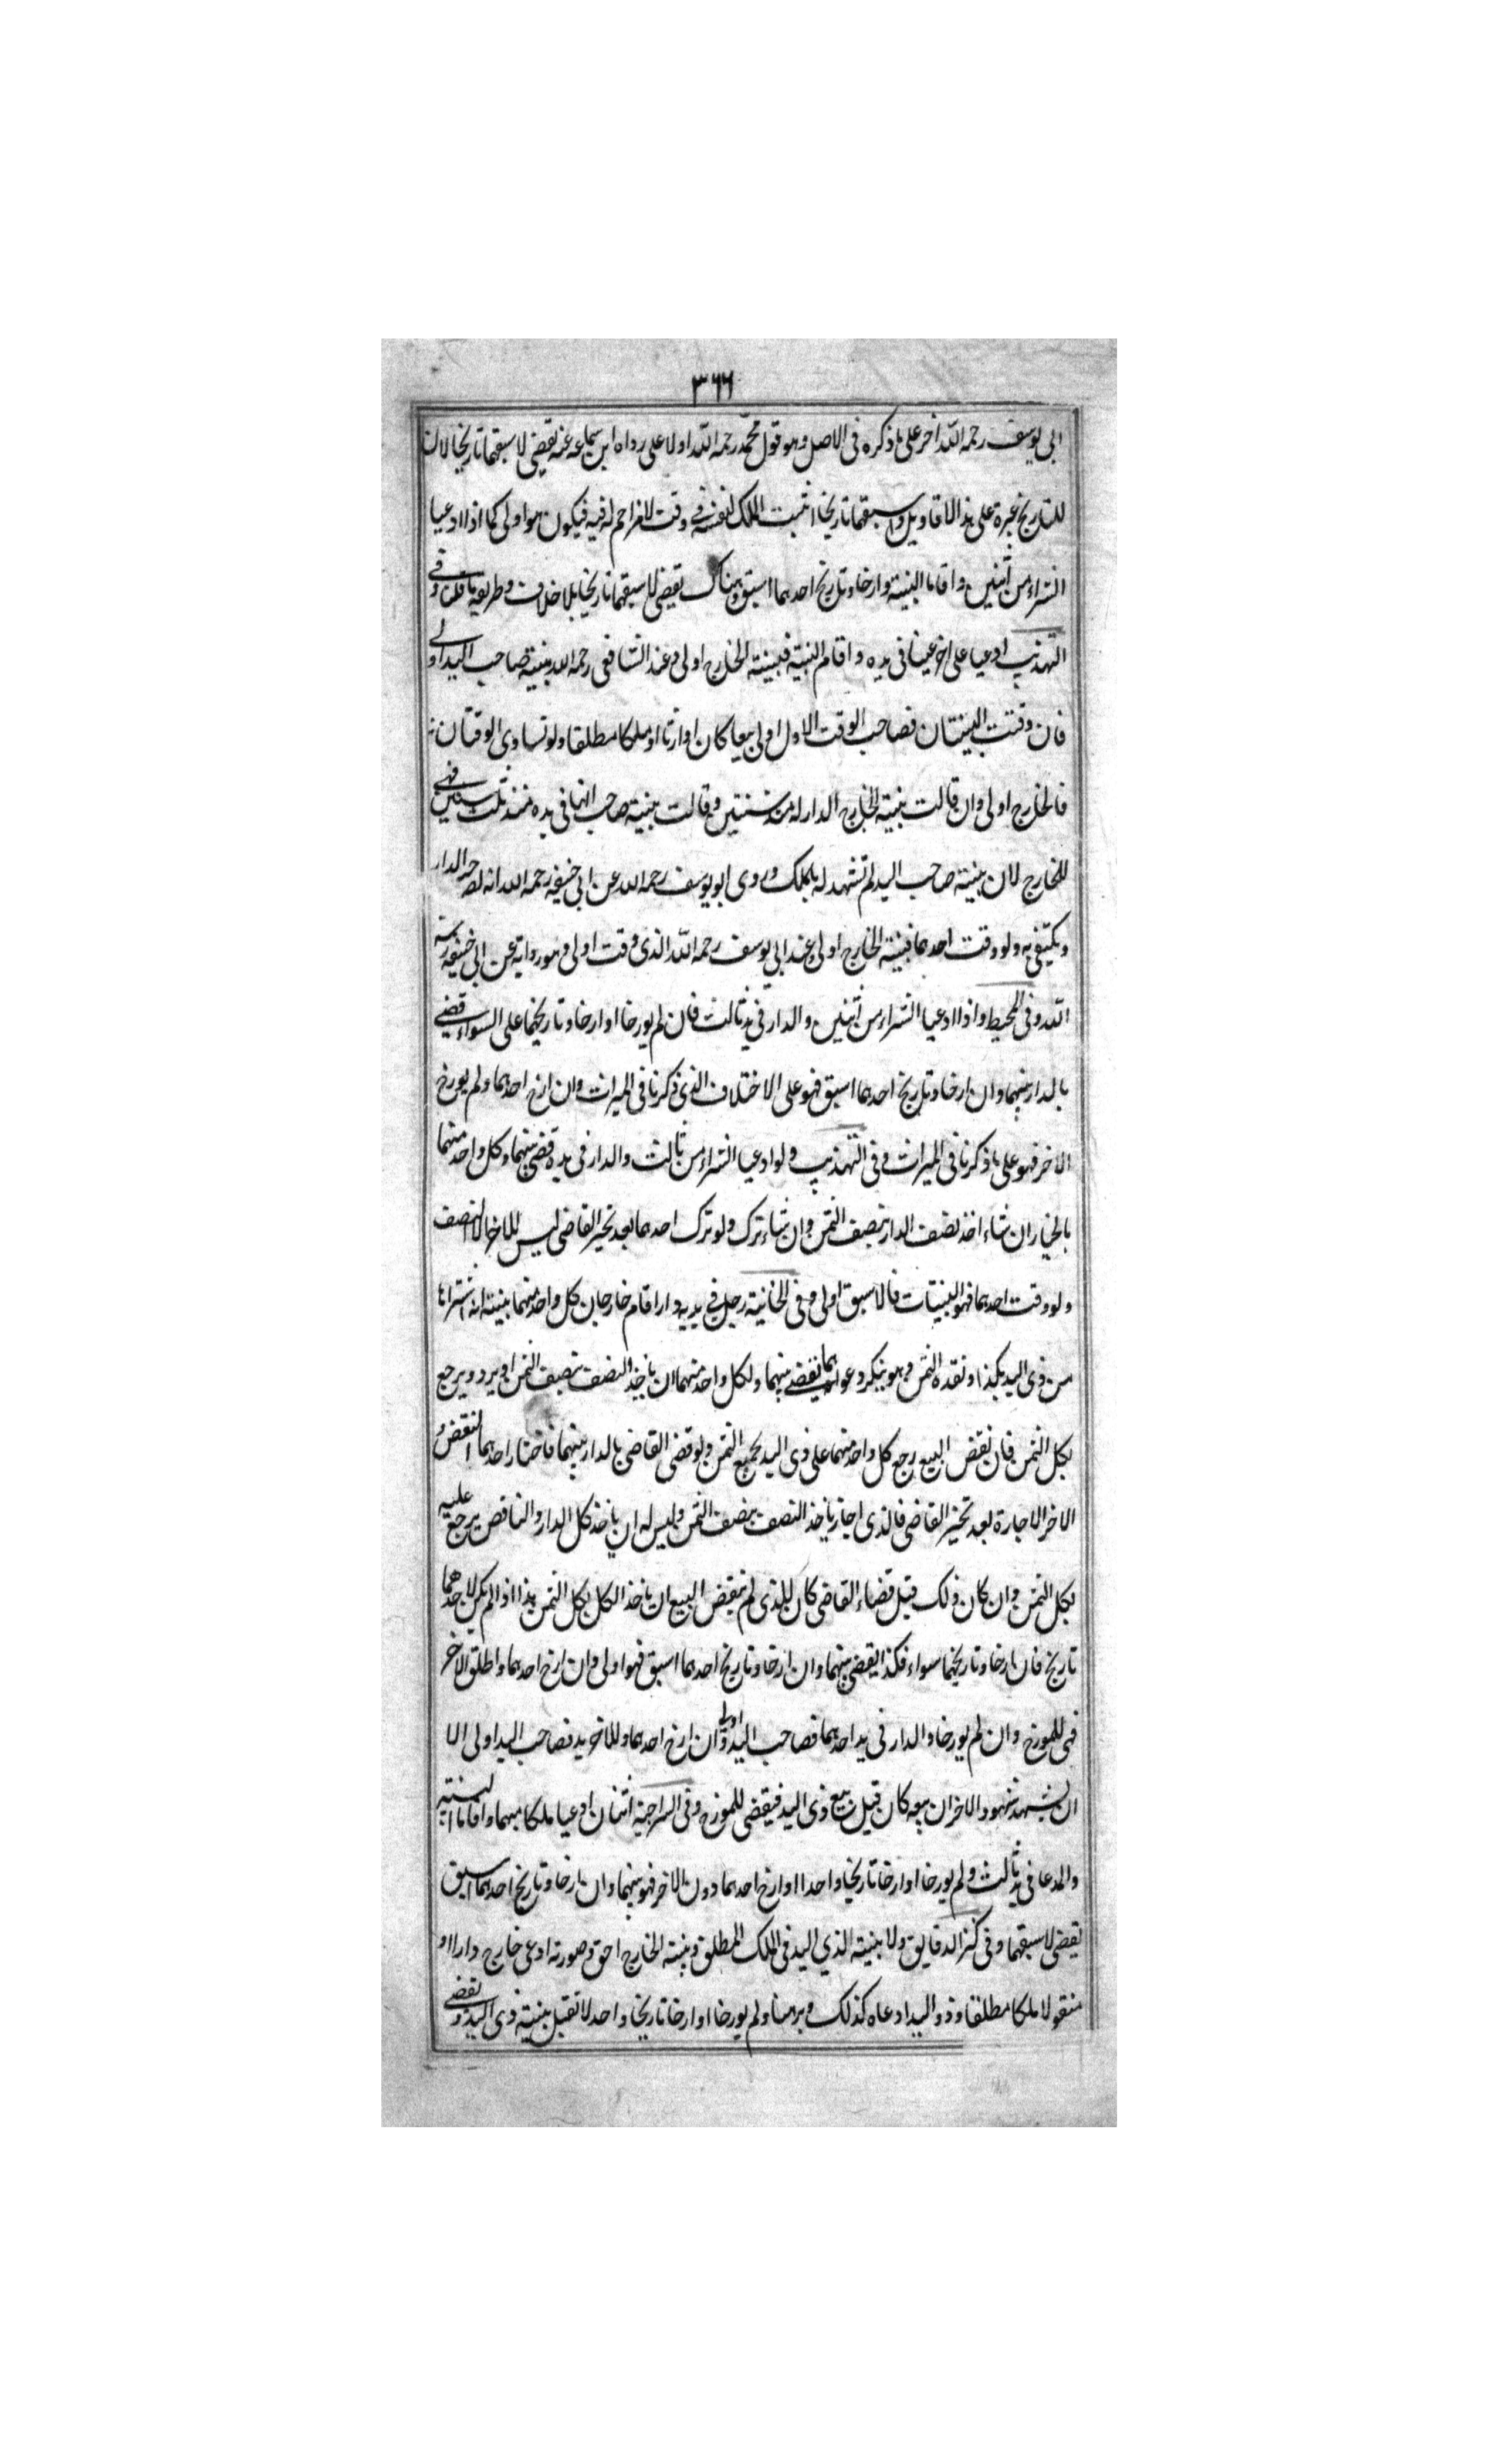 ٣٦٦
ابى يوسف رحمه الله اخر على ما ذكره فى الاصل وهو قول محمد رحمه الله اولا على رواه ابن سماعه عنه يقضى لاسبقهما تاريخا لان
للتاريخ عبرة على هذ الاقاويل واسبقهما تاريخا اثبت الملك لنفسه فى وقت لا مزاحم له فيه فيكون هو اولى كما اذا ادعيا
الشراء من اثنين واقاما البينة وارخا وتاريخ احدهما اسبق وهناك يقضى لاسبقهما تاريخا بلا خلاف وطريقه ما قلنا وفى
التهذيب ادعيا على اخر عينا فى يده واقام البينة فبينته الخارج اولى وعند الشافعى رحمه الله بينة صاحب اليد اولى
فان وقتت البينتان فصاحب الوقت الاول اولى بيعا كان او ارثا او ملكا مطلقا ولو تساوى الوقتان
فالخارج اولى وان قالت بينة الخارج الدار له منذ سنتين وقالت بينة صاحب انها فى يده منذ ثلث سنين فهى
للخارج لان بينة صاحب اليد لم تشهد له بالملك وروى ابو يوسف رحمه الله عن ابى حنيفه رحمه الله انه الدار
ويكتفى به ولو وقتت احدهما فبينة الخارج اولى وعند ابى يوسف رحمه الله الذى وقت اولى وهو رواية عن ابى حنيفه رحمه
الله وفى المحيط واذا ادعيا الشراء من اثنين والدار فى يد ثالث فان لم يورخا او ارخا وتاريخهما على السواء قضى
بالدار بينهما وان ارخا وتاريخ احدهما اسبق فهو على الاختلاف الذى ذكرنا فى الميراث وان ارخ احدهما ولم يورخ
الاخر فهو على ما ذكرنا فى الميراث وفى التهذيب ولو ادعيا الشراء من ثالث والدار فى يده قضى بينهما وكل واحد منهما
بالخيار ان شاء اخذ نصف الدار بنصف الثمن وان شاء ترك ولو ترك احدهما بعد تخير القاضى ليس للاخر الا النصف
ولو وقت احدهما فهو البينات فالاسبق اولى وفى الخانية رجل فى يديه دار اقام خارجان كل واحد منهما بينة انه اشتراها
من ذى اليد بكذا ونقده الثمن وهو ينكر دعواهما يقضى بينهما ولكل واحد منهما ان ياخذ النصف بنصف الثمن او يرد ويرجع
بكل الثمن فان نقض البيع رجع كل واحد منهما على ذى اليد بجميع الثمن ولو قضى القاضى بالدار بينهما فاختار احدهما النقض و
الاخر الاجازة بعد تخير القاضى فالذى اجاز ياخذ النصف بنصف الثمن وليس له ان ياخذ كل الدار والناقض يرجع عليه
بكل الثمن وان كان ذلك قبل قضاء القاضى كان للذى لم ينقض البيع ان ياخذ الكل بكل الثمن هذا اذا لم يكن لاحدهما
تاريخ فان ارخا وتاريخهما سواء فكذا يقضى بينهما وان ارخا وتاريخ احدهما اسبق فهو اولى وان ارخ احدهما واطلق الاخر
فهى للمورخ وان لم يورخا والدار فى يد احدهما فصاحب اليد اولى وان ارخ احدهما وللاخر يد فصاحب اليد اولى الا
ان يشهد شهود الاخر ان بيعه كان قبل بيع ذى اليد فيقضى للمورخ وفى السراجية اثنان ادعيا ملكا مبهما واقاما البينة
والمدعا فى يد ثالث ولم يورخا او ارخا تاريخا واحدا او ارخ احدهما دون الاخر فهو بينهما وان ارخا وتاريخ احدهما اسبق
يقضى لاسبقهما وفى كنز الدقايق ولا بينة الذي اليد فى الملك المطلق وبينة الخارج احق وصورته ادعى خارج دارا او
منقولا ملكا مطلقا وذو اليد ادعاه كذلك وبرهنا ولم يورخا او ارخا تاريخا واحد لا تقبل بينة ذى اليد و يقضى